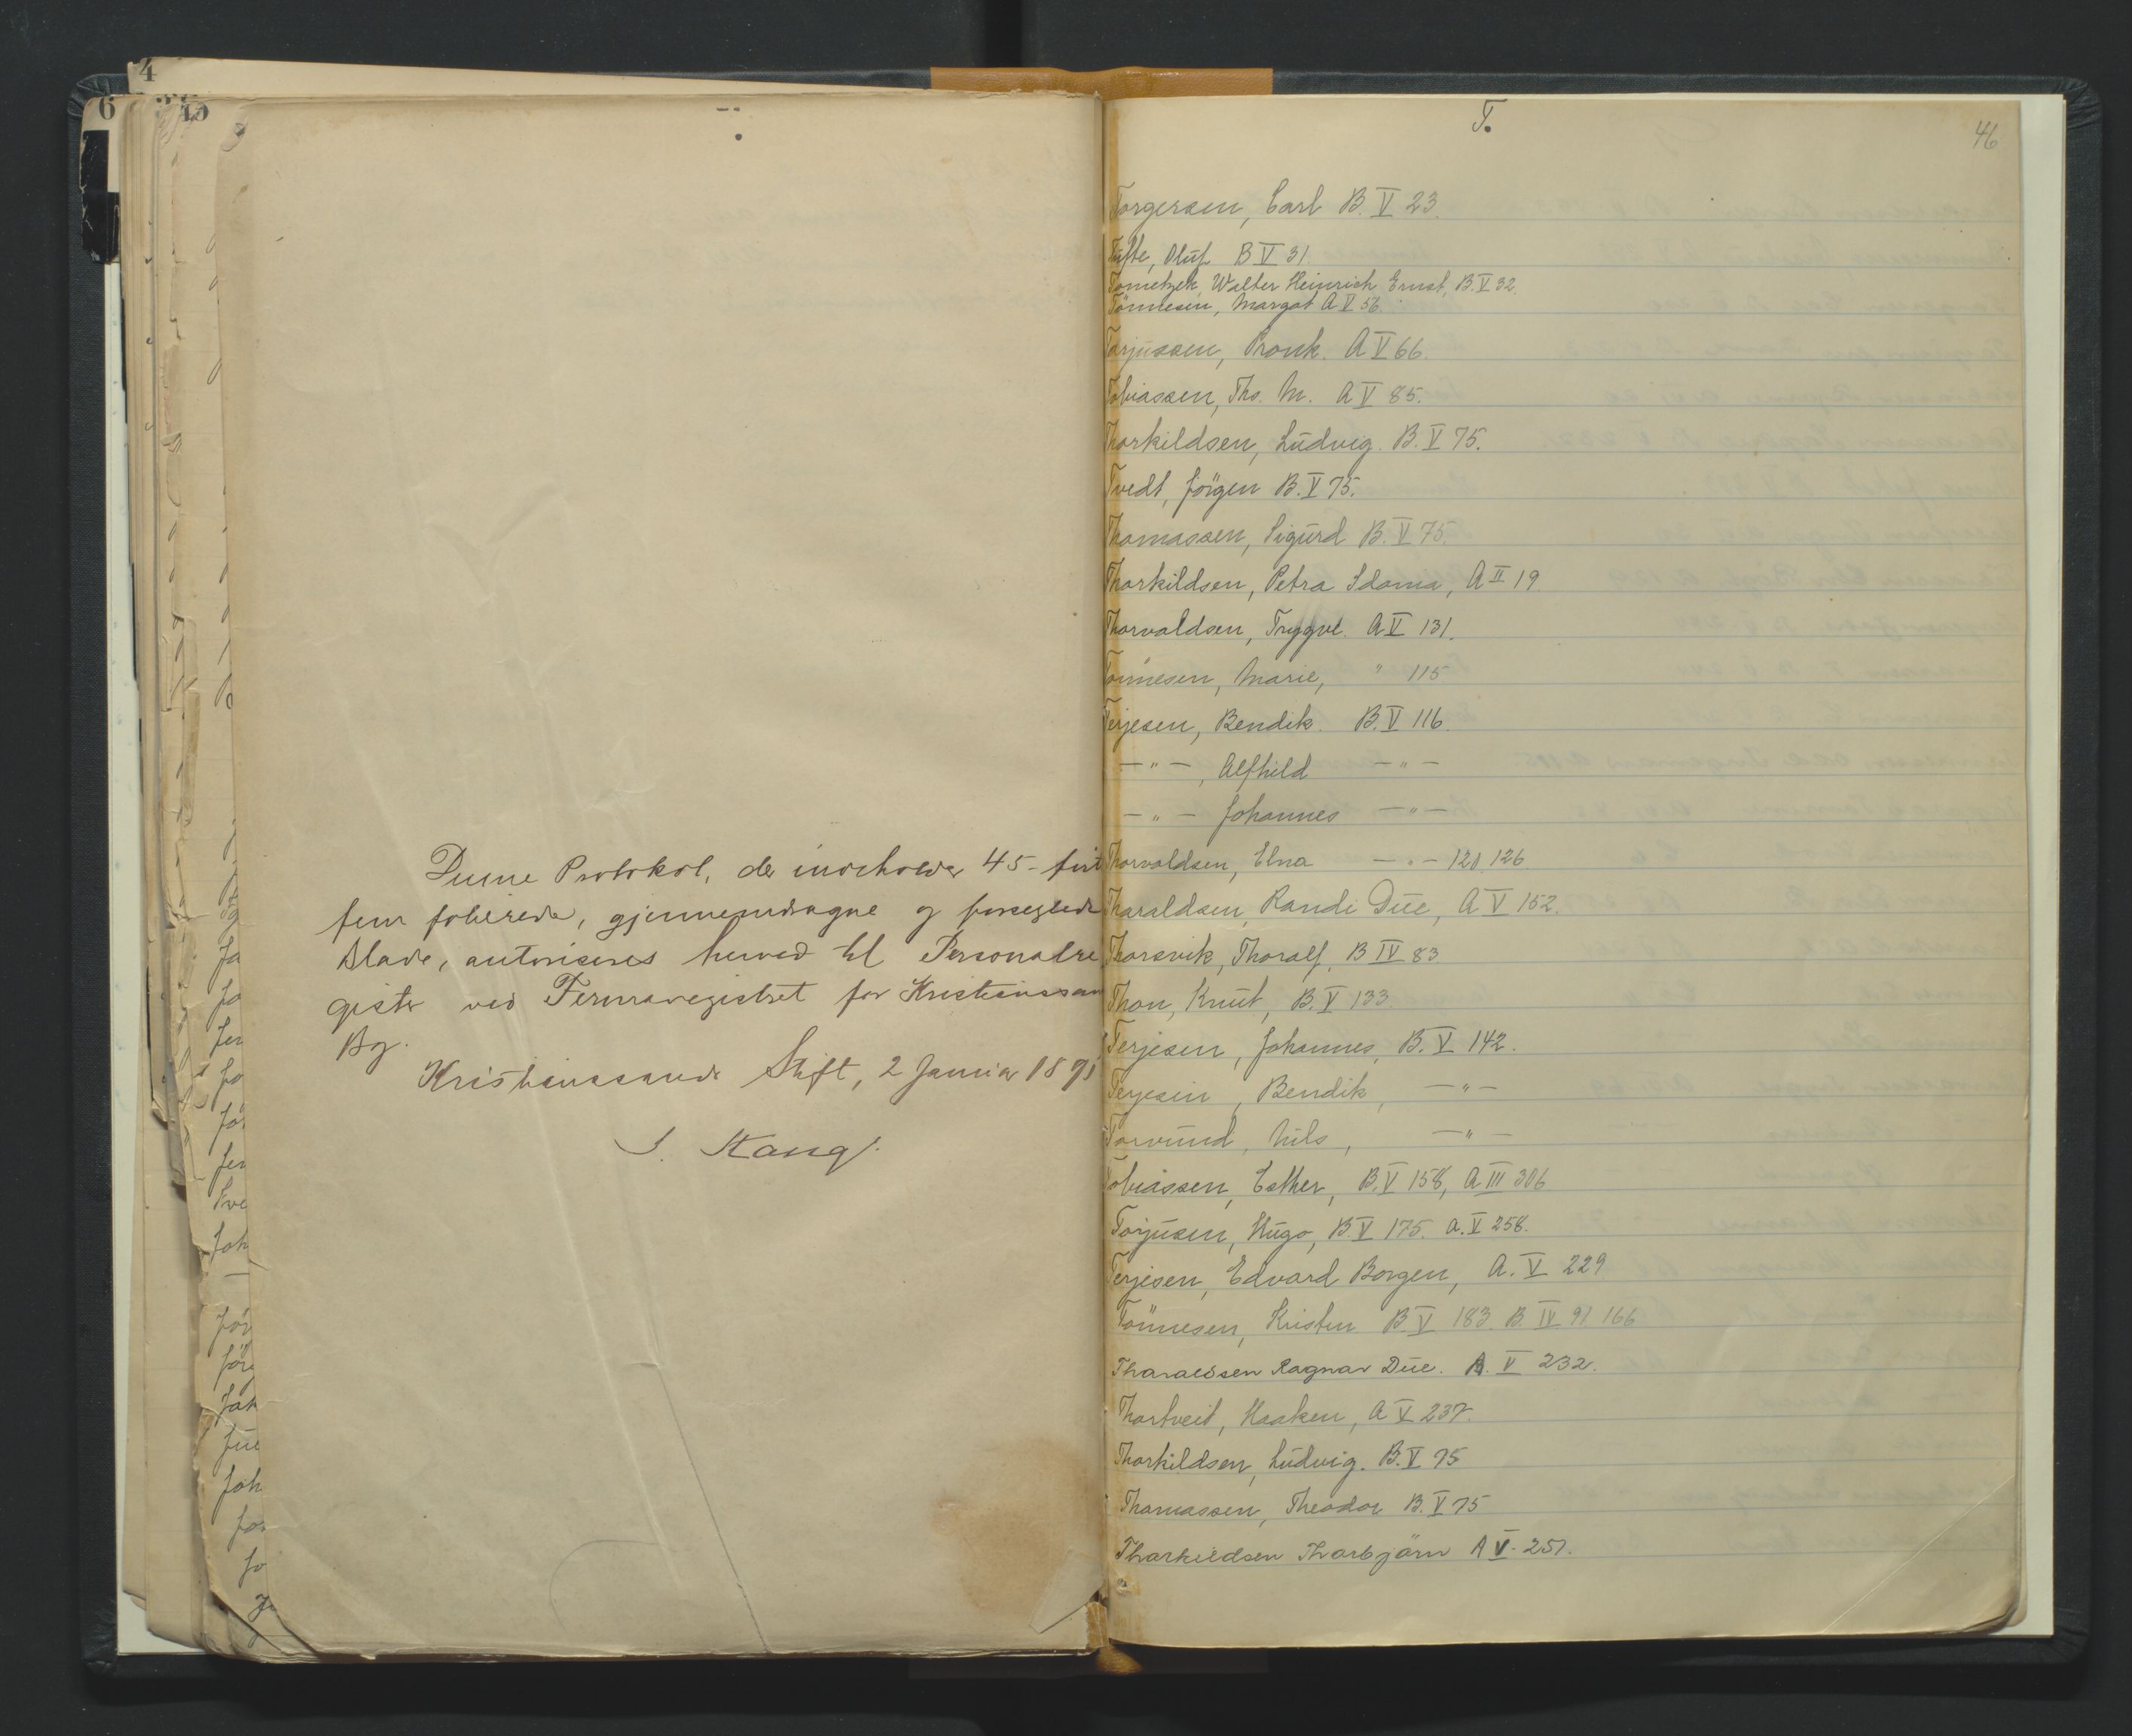 4
6
45
Denne Protokol, der indeholder 45 - firti
fem folierede, gjennemdragne og forseglede
Blade, autoriseres herved til Personalre
gister ved Firmaregistret for Kristianssan
By.
Kristianssands Stift, 2 Januar 1891
S. Stang.
T.
46
Torgersen, Carl B. V 23.
Tufte, Oluf B V 31
Tometzek, Walter Heinrich Ernst, B. V 32.
Tönnesen, Margot A V 56.
Tarjussen, Pronk. A V 66.
Tobiassen, Ths. M. A V 85.
Thorkildsen, Ludvig. B. V 75.
Tvedt, Jörgen B. V 75.
Thomassen, Sigurd B. V 75.
Thorkildsen, Petra Idama, A II 19
Thorvaldsen, Trygve. A V 131.
Tönnesen, Marie, " 115
Terjesen, Bendik. B. V 116.
— " — , Alfhild — " —
— " — Johannes — " —
Thorvaldsen, Elna — " — 120. 126.
Tharaldsen, Randi Due, A V 152.
Thorsvik, Thoralf, B IV 83
Thon, Knut, B. V 133.
Terjesen, Johannes, B. V 142.
Terjesen, Bendik, — " —
Torvund, Nils, — " —
Tobiassen, Esther, B. V 158, A III 306
Torjusen, Hugo, B. V 175. A. V 258.
Terjesen, Edvard Borgen, A. V 229
Tönnesen, Kristen B V 183. B. IV 91 166
Tharaldsen Ragnar Due. A. V 232.
Thortveit, Haaken, A V 237.
Thorkildsen, Ludvig. B. V 75
Thomassen, Theodor B. V 75
Thorkildsen Thorbjörn A V. 251.